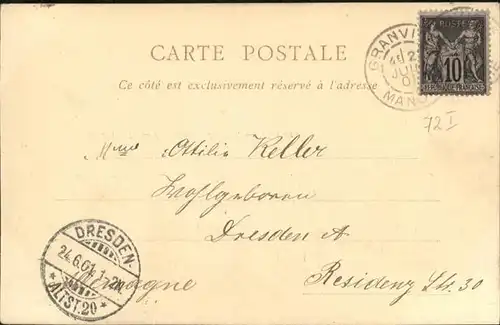 CARTE POSTALE
Ce côté est exclusivement réservé à l'adresse
POSTE
10
REPUBLIQUE FRANÇAISE
72 I
Mme Ottilie Keller
Wohlgeboren
Dresden A
Residenz Str. 30
Allemagne
DRESDEN-
24.6.01
*ALTST.20*